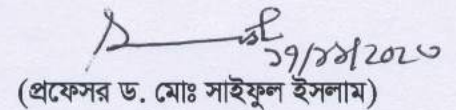 ১৭/১১/২০২০
(প্রফেসর ড. মোঃ সাইফুল ইসলাম)